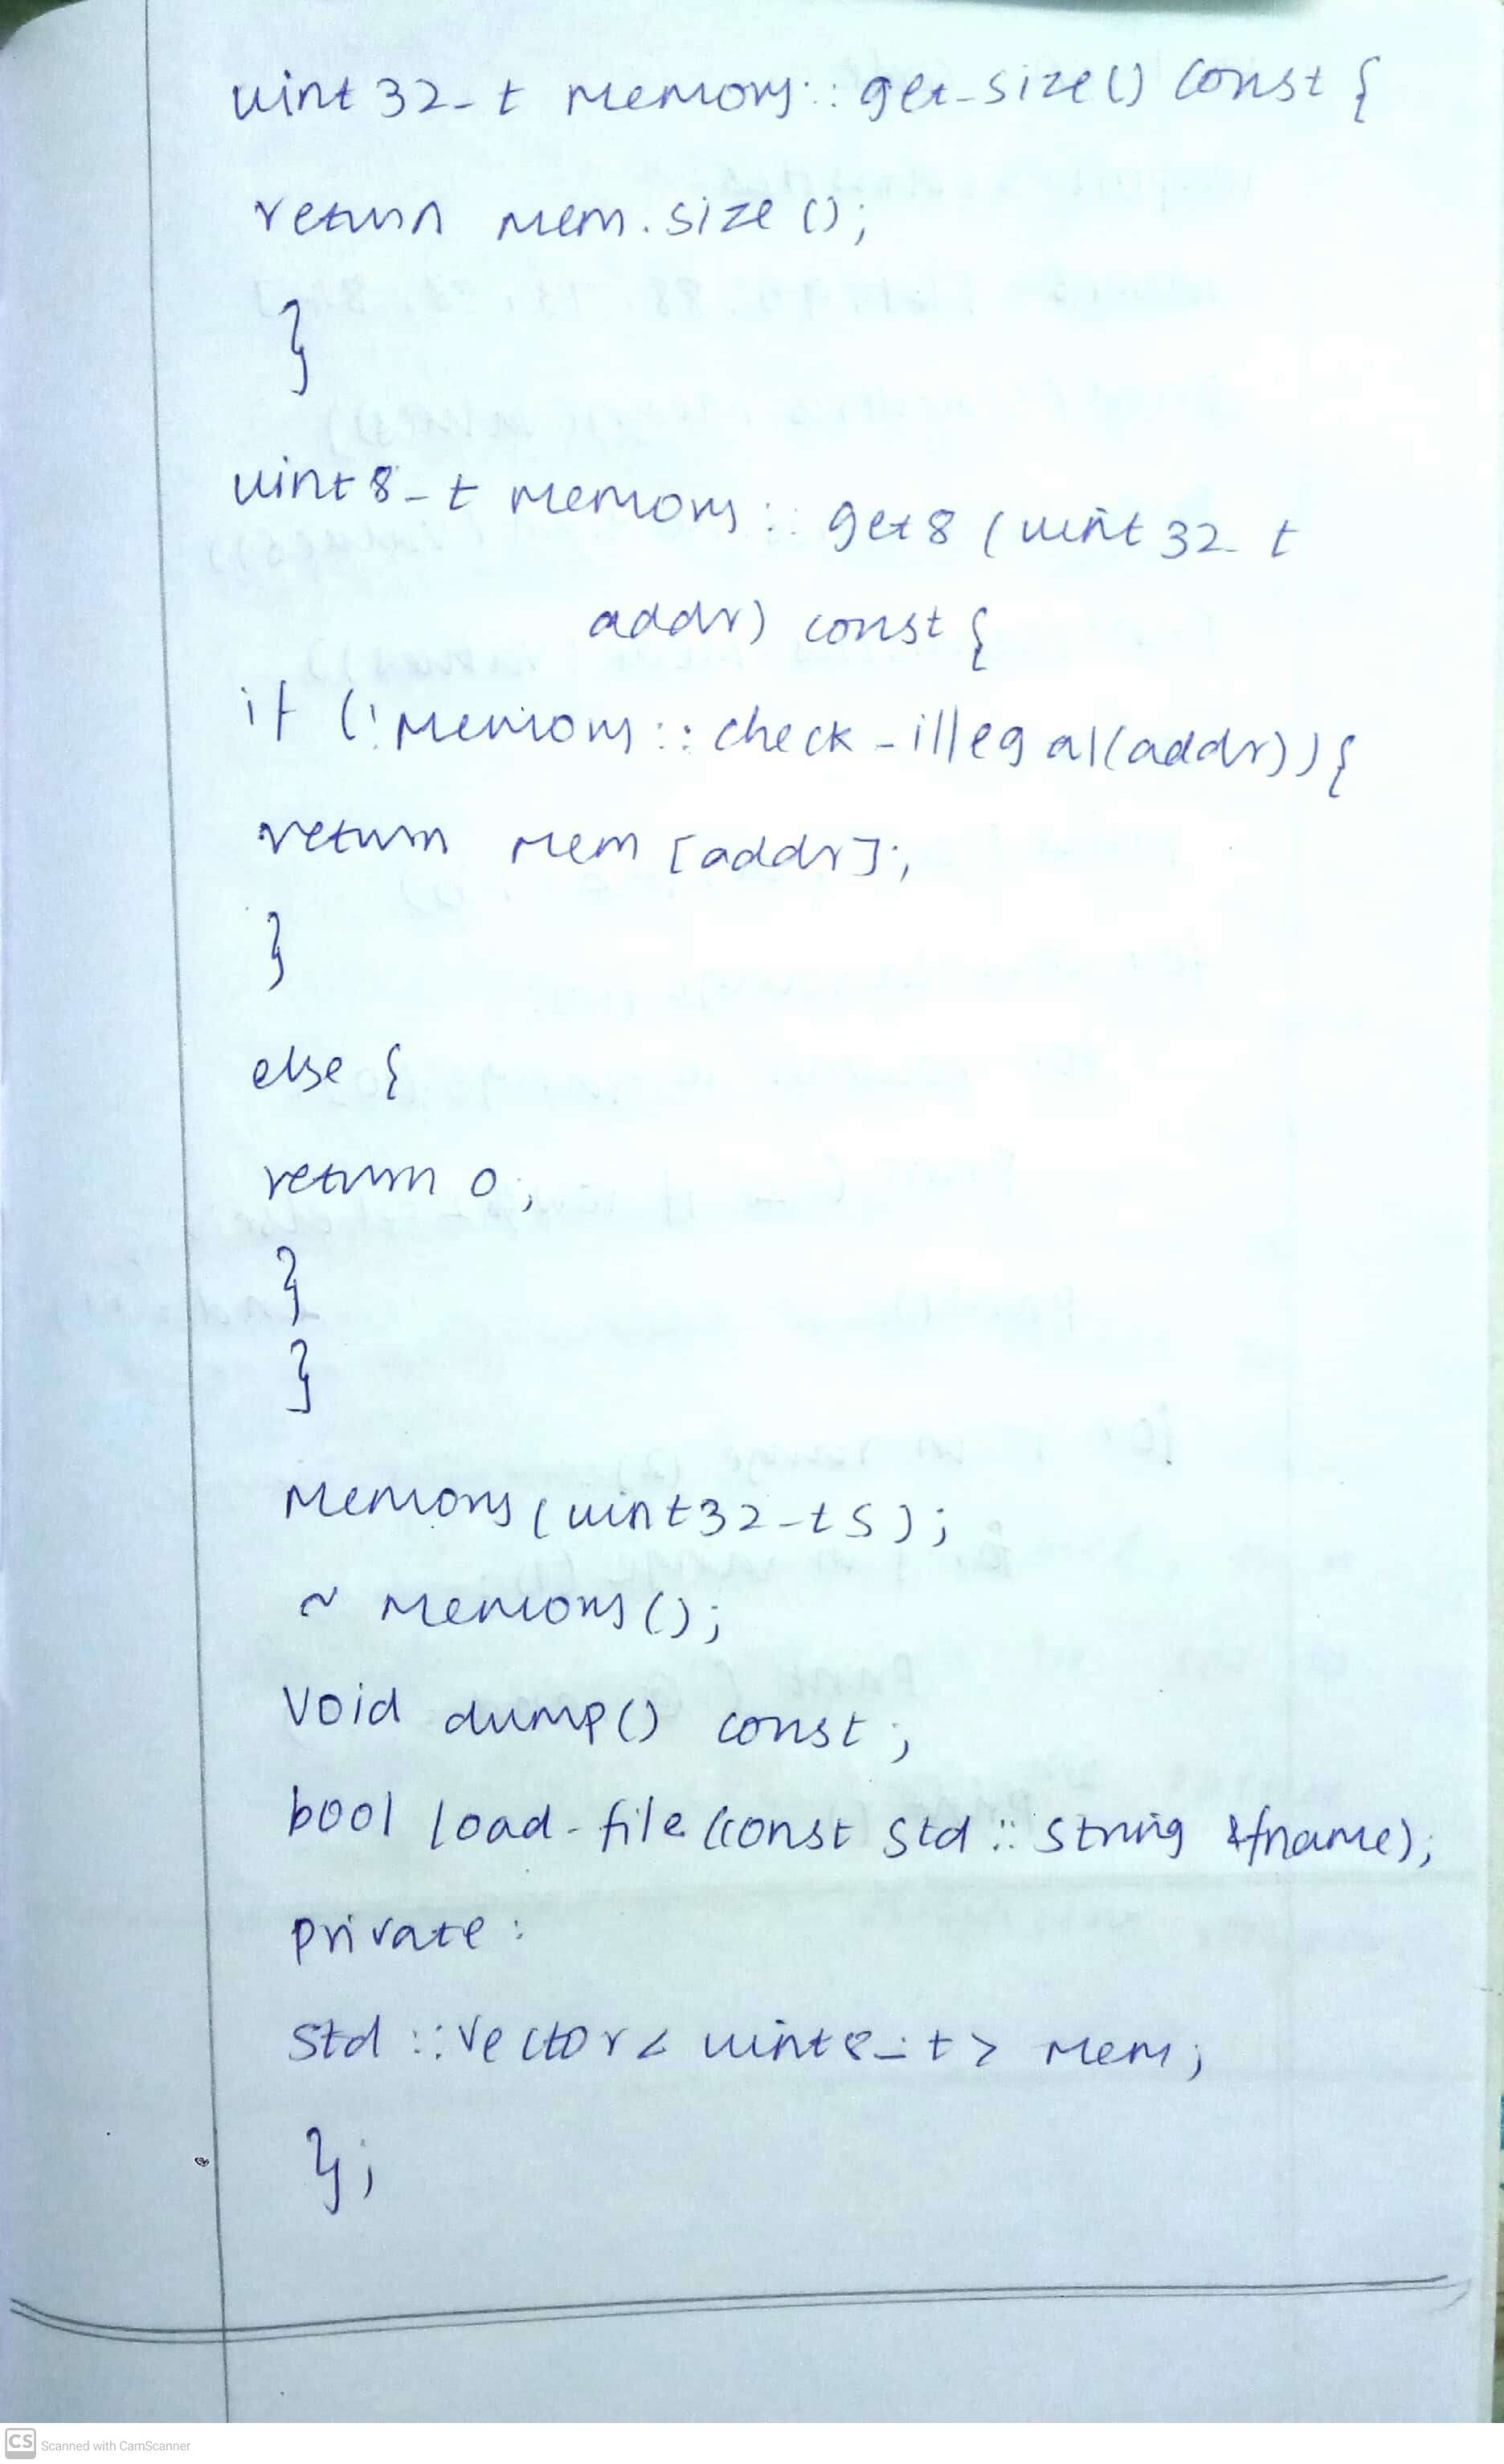 uint32_t memory::get_size() const {
return mem.size();
}
uint8_t memory::get8(uint32_t
addr) const {
if (!memory::check_illegal(addr)) {
return mem[addr];
}
else {
return 0;
}
}
memory(uint32_t s);
~memory();
void dump() const;
bool load_file(const std::string &fname);
private:
std::vector<uint8_t> mem;
};
CS Scanned with CamScanner